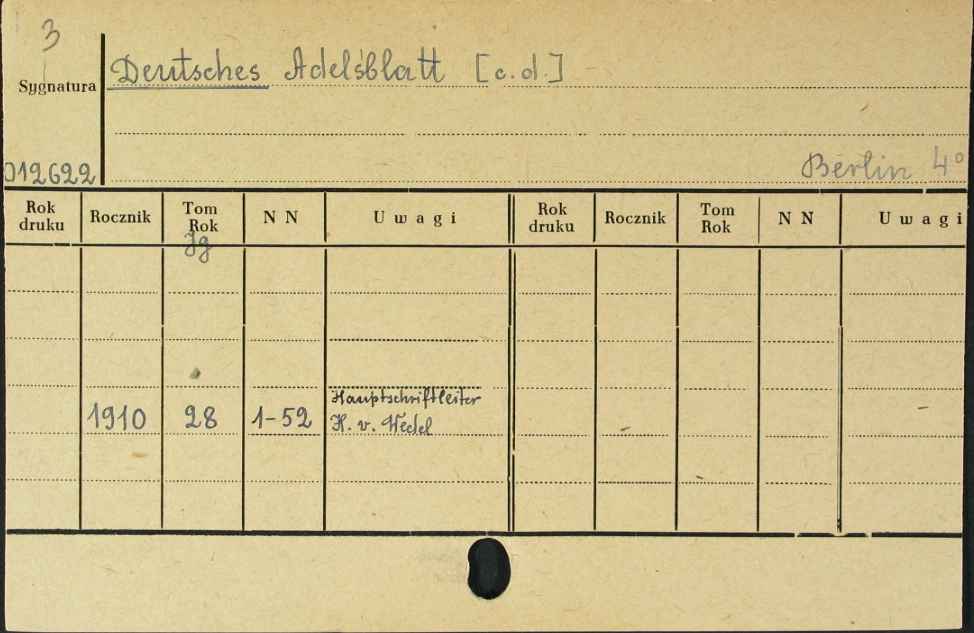 3
Deutsches Adelsblatt [c.d.]
Sygnatura
012622
Berlin 4°
Rok druku Rocznik Tom Rok N N Uwagi Rok druku Rocznik Tom Rok N N Uwagi
Jg
Hauptschriftleiter
1910 28 1-52 H. v. Wedel